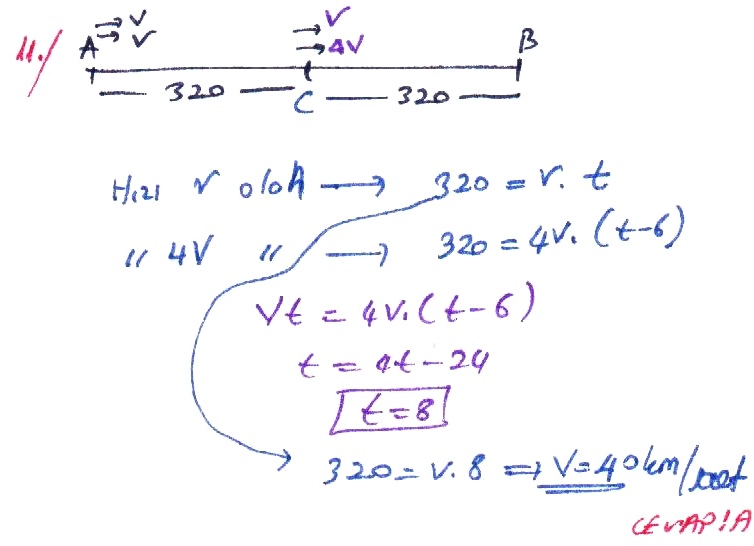 11./ A → V → V → V → 4V B
320 C 320
Hızı V olan → 320 = V. t
" 4V " → 320 = 4V. (t-6)
Vt = 4V. (t-6)
t = 4t - 24
t = 8
320 = V. 8 ⇒ V = 40 km/saat
CEVAP: A